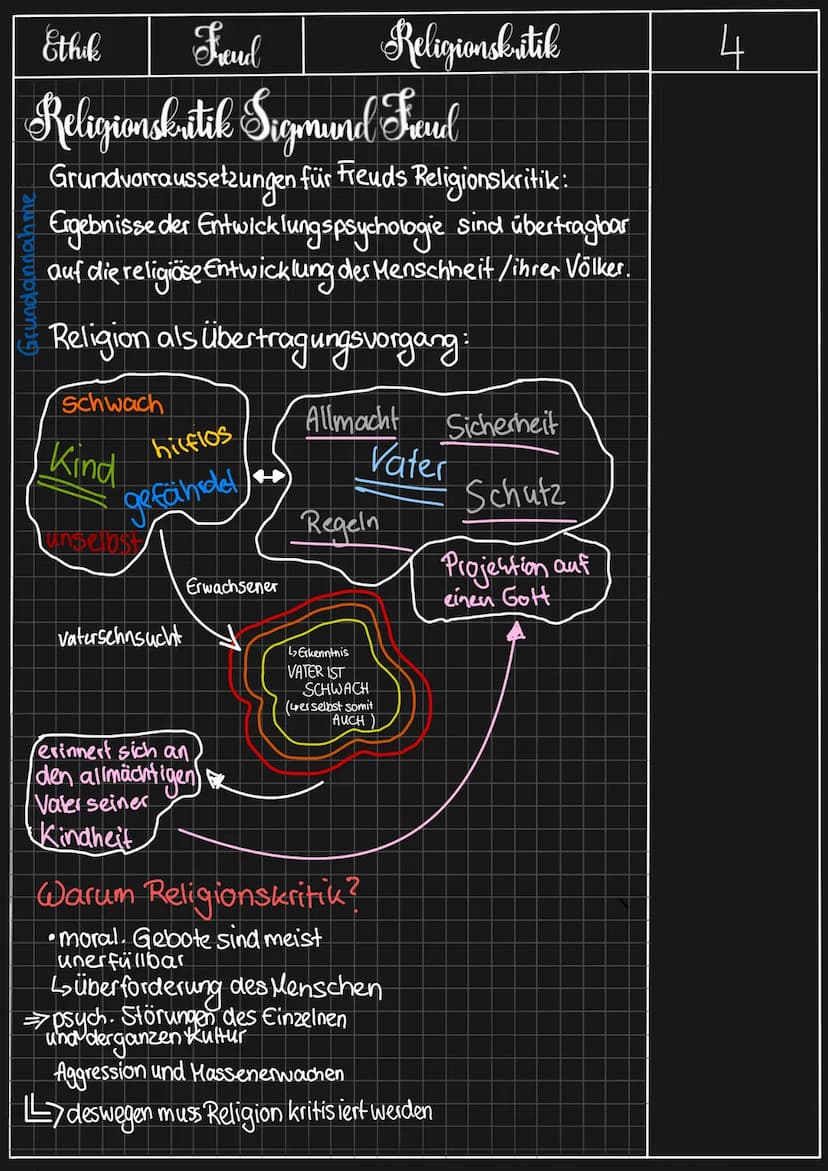 Ethik
Freud
Religionskritik
4
Religionskritik Sigmund Freud
Grundvorraussetzungen für Freuds Religionskritik:
Grundannahme
Ergebnisse der Entwicklungspsychologie sind übertragbar
auf die religiöse Entwicklung der Menschheit / ihrer Völker.
Religion als Übertragungsvorgang:
schwach
hilflos
Kind
gefährdet
unselbst
↔
Allmacht
Sicherheit
Vater
Schutz
Regeln
Projektion auf
einen Gott
Erwachsener
Vatersehnsucht
↳ Erkenntnis
VATER IST
SCHWACH
(↳ er selbst somit
AUCH)
erinnert sich an
den allmächtigen
Vater seiner
Kindheit
Warum Religionskritik?
• moral. Gebote sind meist
unerfüllbar
↳ Überforderung des Menschen
⇒ psych. Störungen des Einzelnen
und der ganzen Kultur
Aggression und Massenerwachen
↳ deswegen muss Religion kritisiert werden